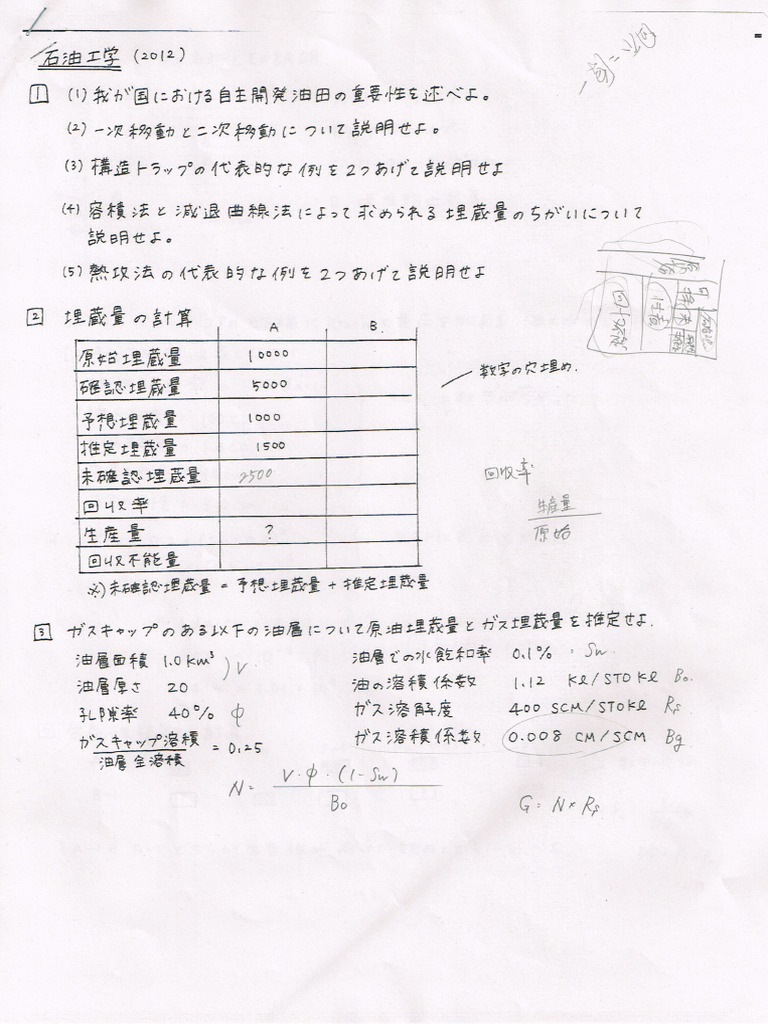 石油工学 (2012)
1 (1) 我が国における自主開発油田の重要性を述べよ。
(2) 一次移動と二次移動について説明せよ。
(3) 構造トラップの代表的な例を2つあげて説明せよ
(4) 容積法と減退曲線法によって求められる埋蔵量のちがいについて
説明せよ。
(5) 熱攻法の代表的な例を2つあげて説明せよ
2 埋蔵量の計算
A B
原始埋蔵量 10000
確認埋蔵量 5000
予想埋蔵量 1000
推定埋蔵量 1500
未確認埋蔵量 2500
回収率
生産量 ?
回収不能量
数字の穴埋め.
回収率
生産量
原始
※) 未確認埋蔵量 = 予想埋蔵量 + 推定埋蔵量
3 ガスキャップのある以下の油層について原油埋蔵量とガス埋蔵量を推定せよ.
油層面積 1.0 km³ ) V
油層厚さ 20
孔隙率 40% φ
ガスキャップ溶積
油層全溶積
= 0.25
油層での水飽和率 0.1% Sw
油の溶積係数 1.12 Kl/STOKl Bo
ガス溶解度 400 SCM/STOKl Rs
ガス溶積係数 0.008 CM/SCM Bg
N = V・φ・(1-Sw)
Bo
G = N × Rs